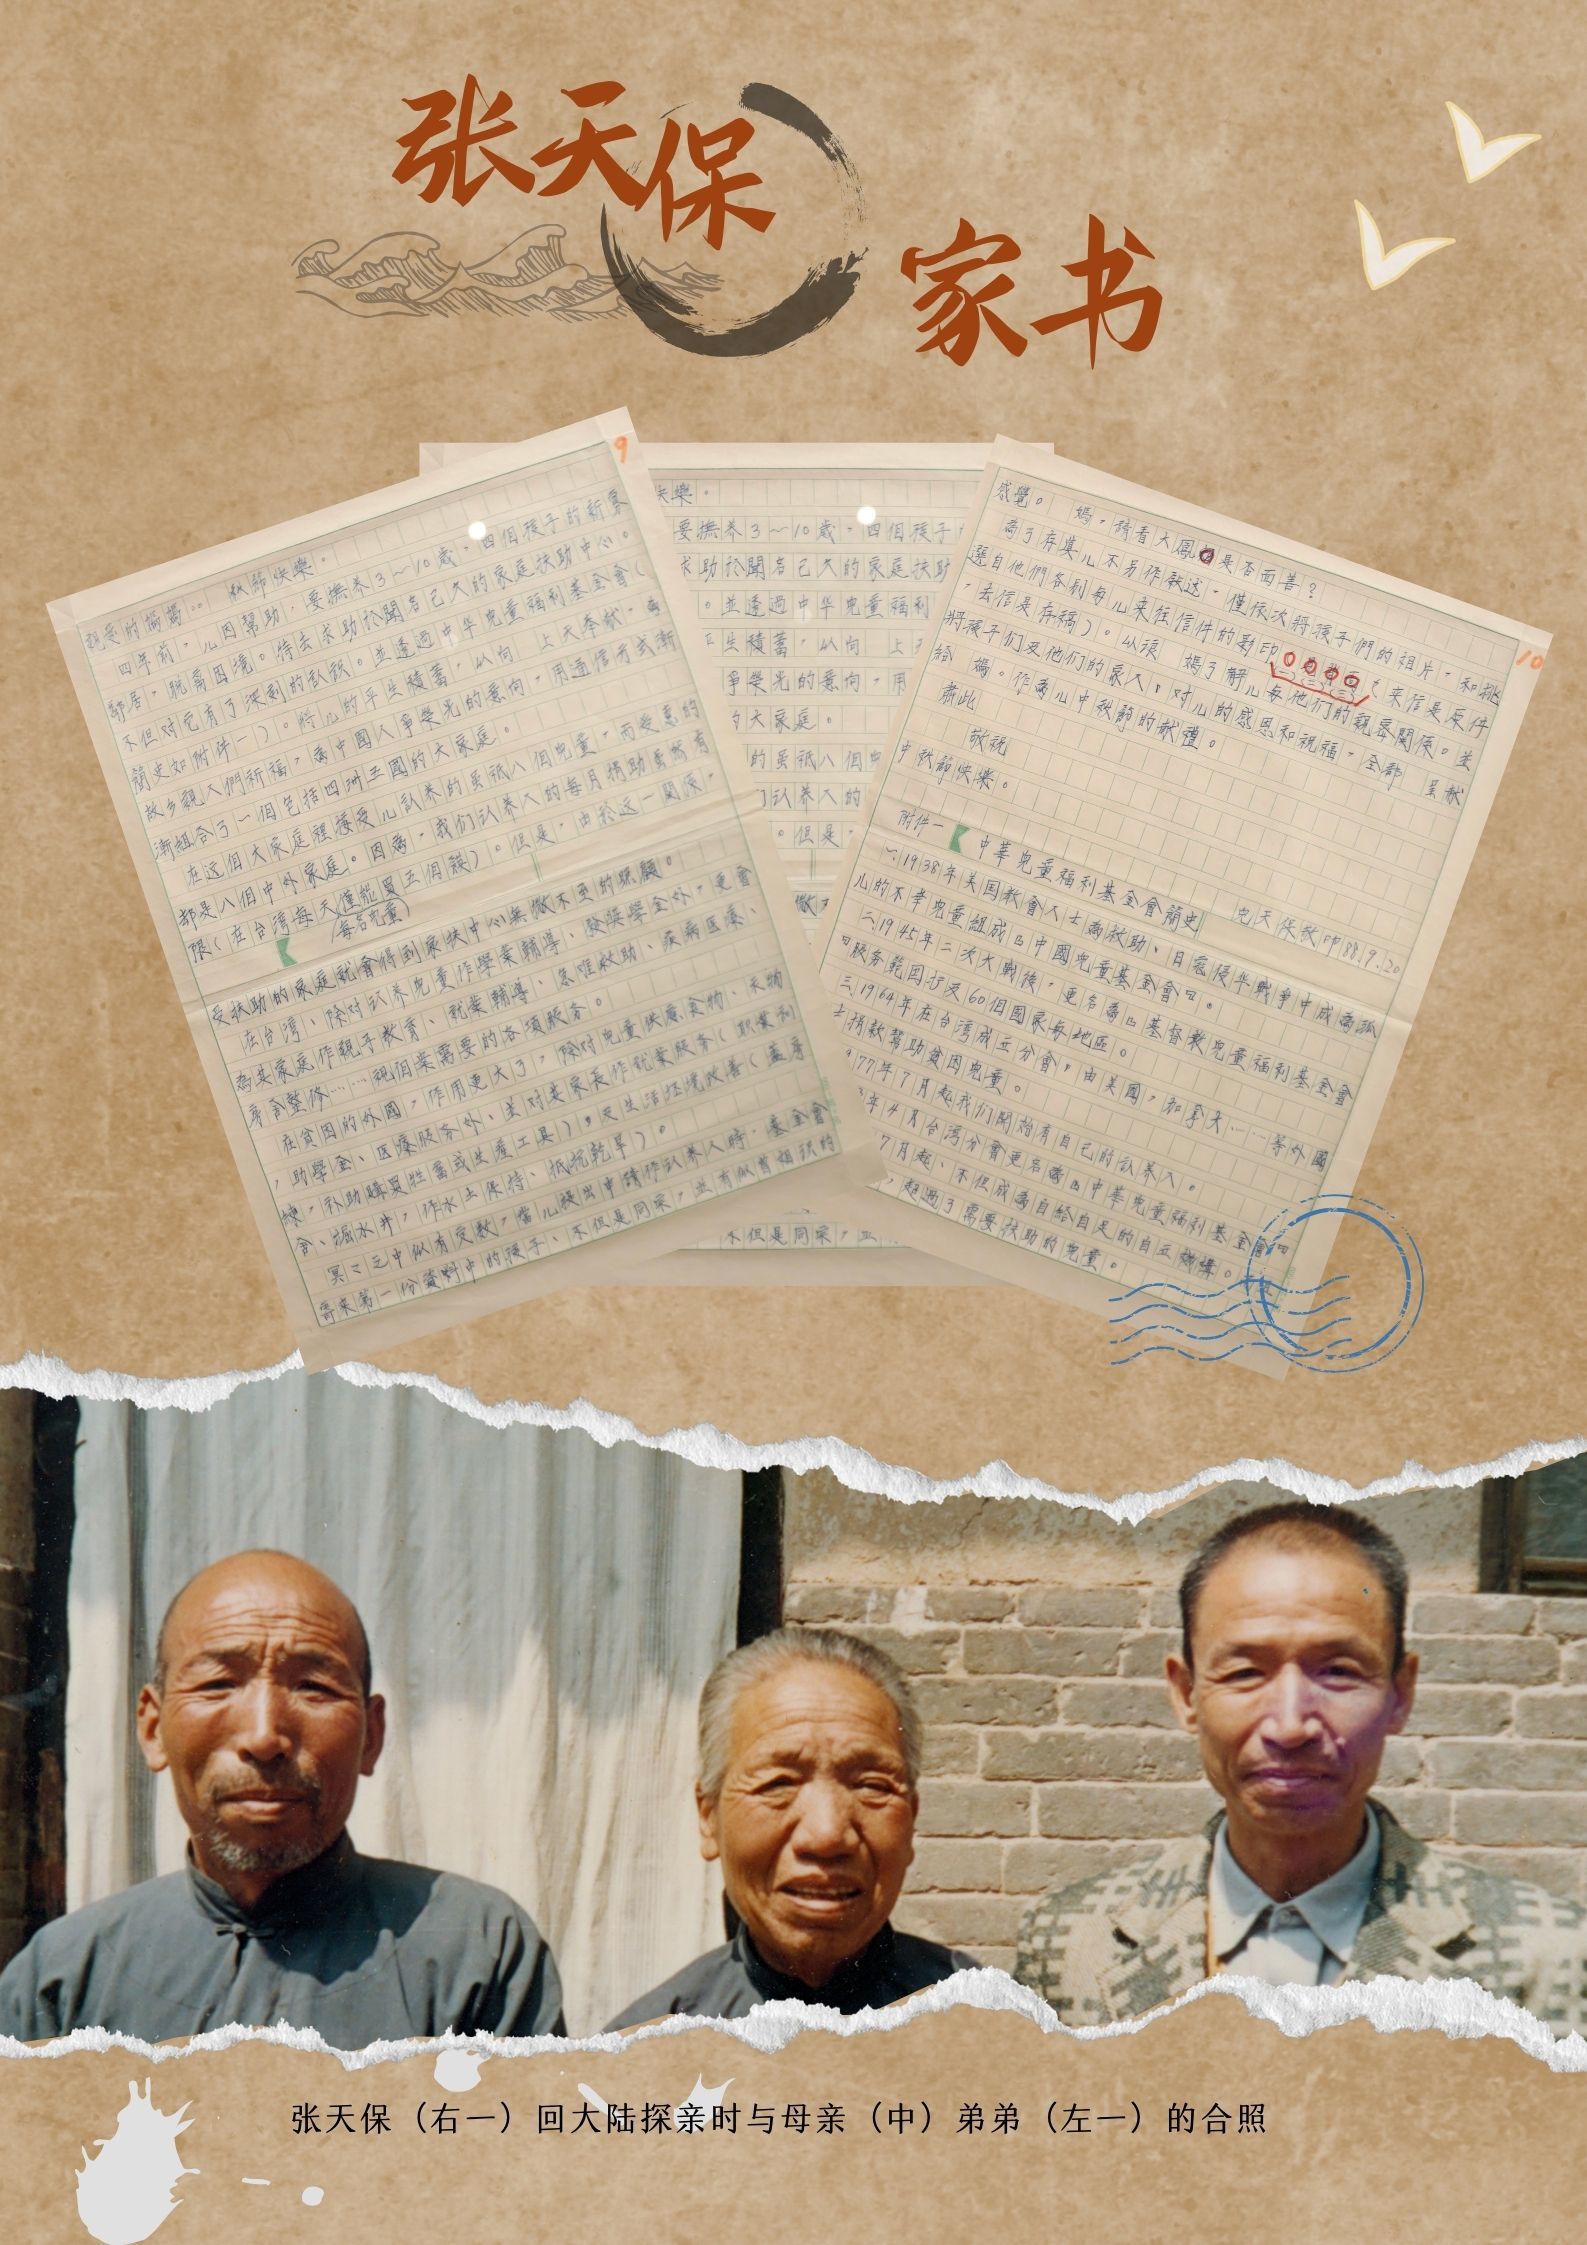 张天保
家书
9
親爱的媽媽:: 秋節快樂。
四年前,儿因幫助,要撫养3～10歲,四個孩子的新寡
鄰居,脱离困境。特去求助於聞名已久的家庭扶助中心。
不但对它有了深刻的認識。並透過中华兒童福利基金會(
簡史如附件一)。將儿的平生積蓄,以向 上天奉献,為
故乡親人們祈福,為中國人爭榮光的意向,用通信方式漸
漸組合了一個包括四洲三國的大家庭。
在这個大家庭裡接受儿認养的虽祇八個兒童,而受惠的
都是八個中外家庭。因為,我们认养人的每月捐助虽然有
限(在台湾每天僅能買五個饃)。但是,由於这一関係,
(每名兒童)
受扶助的家庭就會得到家扶中心無微不至的照顧。
在台湾、除对认养兒童作學業輔導、發獎學金外,更會
為其家庭作親子教育、就業輔導、急难救助、疾病医療、
房舍整修……視個案需要的各項服务。
在貧困的外國,作用更大了,除对兒童供應食物、衣物
,助學金、医療服务外、並对其家長作就業服务(职業訓
練,补助購買牲畜或生產工具)。及生活环境改善(蓋房
舍、掘水井,作水土保持、抵抗乾旱)。
冥冥之中似有定数,當儿提出申請作认养人時,基金會
寄来第一份資料中的孩子、不但是同宗,並有似曾相识的
快樂。
要撫养3～10歲,四個孩子
求助於聞名已久的家庭扶助
。並透過中华兒童福利
生積蓄,以向 上天
爭榮光的意向,用
大家庭。
的虽祇八個
认养人的
。但是,
不但是同宗,並
10
感覺。 媽,請看大鳳是否面善?
為了存真儿不另作敍述,僅依次將孩子們的祖片,和挑
選自他們各别每儿来往信件的影印(来信是原件
,去信是存稿)。以須 媽了解儿每他们的親密関係。並
將孩子们及他们的家人,对儿的感恩和祝福,全部 呈献
給 媽。作為儿中秋節的献禮。
肅此
敬祝
中秋節快樂。
兒天保敬叩88.9.20
附件一 中華兒童福利基金會簡史
一、1938年美国教會人士為救助、日寇侵华戰争中成為孤
儿的不幸兒童組成「中國兒童基金會」。
二、1945年二次大戰後,更名為「基督教兒童福利基金會
」服务範囲扩及60個國家每地區。
三、1964年在台湾成立分會,由美國,加拿大……等外國
士捐款幫助貧困兒童。
977年7月起我们開始有自己的认养人。
年4月台湾分會更名為「中華兒童福利基金會」
7月起、不但成為自給自足的自立機構。
,超過了需要扶助的兒童。
张天保（右一）回大陆探亲时与母亲（中）弟弟（左一）的合照